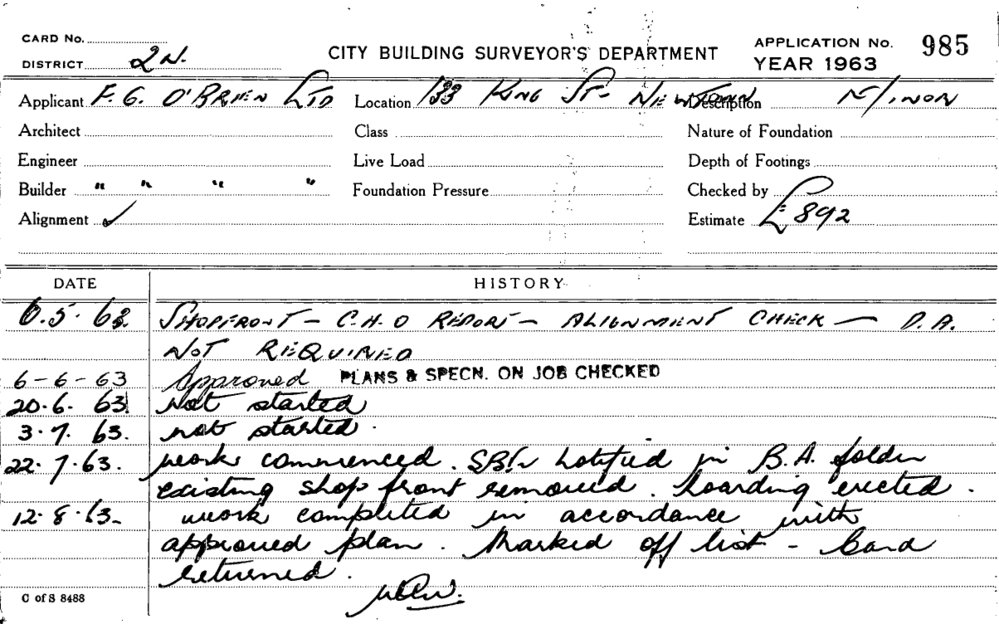 CARD No.
DISTRICT 2N.
CITY BUILDING SURVEYOR'S DEPARTMENT
APPLICATION No. 985
YEAR 1963
Applicant F. G. O'BRIEN LTD Location 133 KING ST- NEWTOWN Description
Architect Class Nature of Foundation
Engineer Live Load Depth of Footings
Builder " " " " Foundation Pressure Checked by
Alignment ✓ Estimate £892
DATE HISTORY
6.5.63 SHOPFRONT - C.H.O REPORT - ALIGNMENT CHECK - D.A.
NOT REQUIRED
6-6-63 Approved PLANS & SPECN. ON JOB CHECKED
20.6.63. Not started
3.7.63. not started.
22.7.63. work commenced. notified in B.A. folder
existing shop front removed. hoarding erected.
12.8.63- work completed in accordance with
approved plan. Marked off list - Card
returned.
C of S 8488